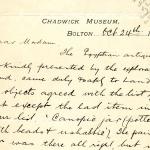 CHADWICK MUSEUM,
BOLTON. Oct 24th 1
Madam
The Egyptian antiqui
kindly presented by the explora
nd, came duly safely to han
objects agreed with the list,
t except the last item in
r list "Canopic jar (potte
th beads & ushabtis)? The pai
r was there all right but